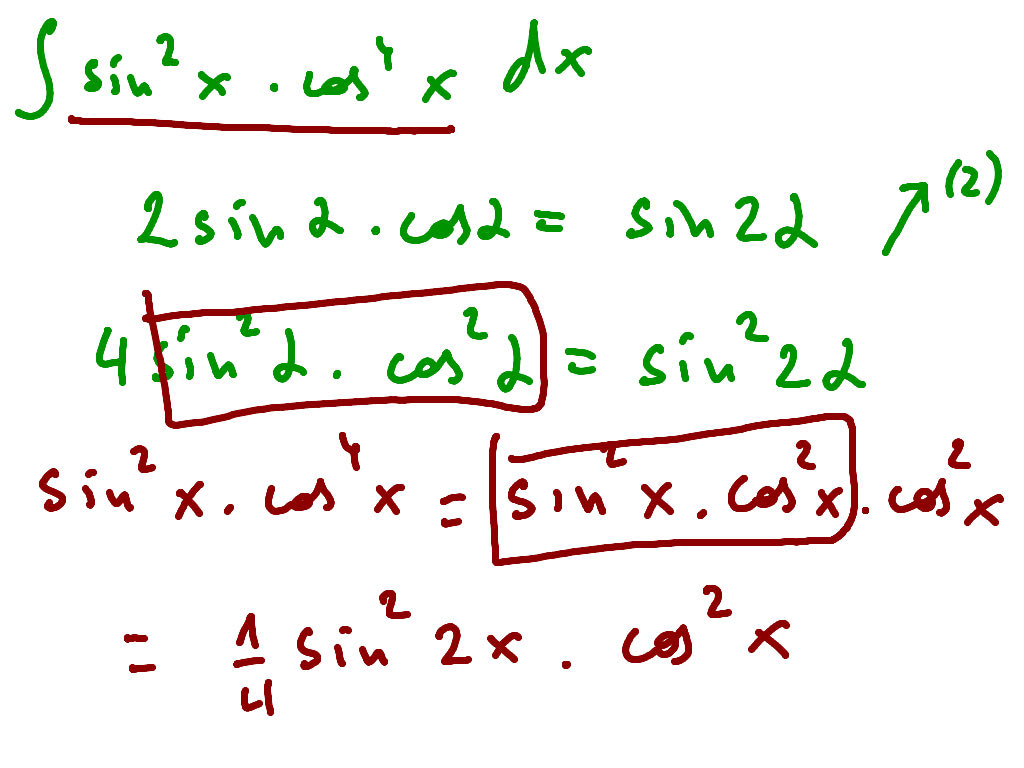 ∫ sin² x · cos⁴ x dx
2 sin α · cos α = sin 2α ↗ (2)
4 sin² α · cos² α = sin² 2α
sin² x · cos⁴ x = sin² x · cos² x · cos² x
= 1/4 sin² 2x · cos² x